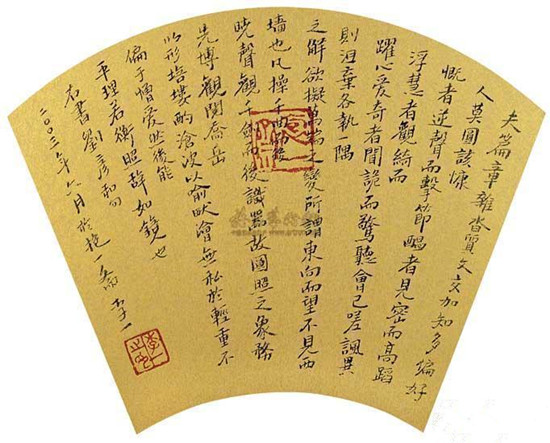 夫篇章雜沓質文交加知多偏好
人莫圓該慷
慨者逆聲而擊節醞者見密而高蹈
浮慧者觀綺而
躍心愛奇者聞詭而驚聽會己嗟諷異
則沮棄各執一隅
之解欲擬萬端之變所謂東向而望不見西
墻也凡操千曲而後
曉聲觀千劍而後識器故圓照之象務
先博觀閱喬岳
以形培塿酌滄波以喻畎澮無私於輕重不
偏于憎愛然後能
平理若衡照辭如鏡也
右書劉彥和句
二〇〇三年六月於抱一齋李一
李一之印